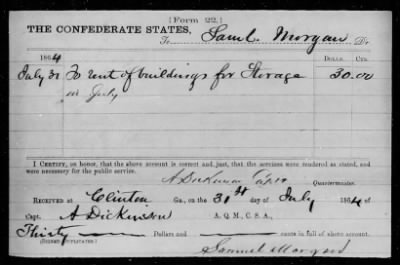 [Form 22.]
THE CONFEDERATE STATES,
To Saml. Morgan Dr
1864 DOLLS. CTS.
July 31 To rent of buildings for Storage 30.00
in July
I CERTIFY, on honor, that the above account is correct and just, that the services were rendered as stated, and
were necessary for the public service.
A Dickinson Capt
Quartermaster.
RECEIVED at Clinton Ga., on the 31st day of July 1864, of
Capt. A Dickinson A.Q.M., C.S.A.,
Thirty Dollars and cents in full of above account.
(SIGNED DUPLICATES.)
Samuel Morgan